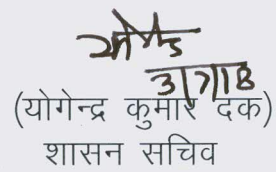 3/7/18
(योगेन्द्र कुमार दक)
शासन सचिव